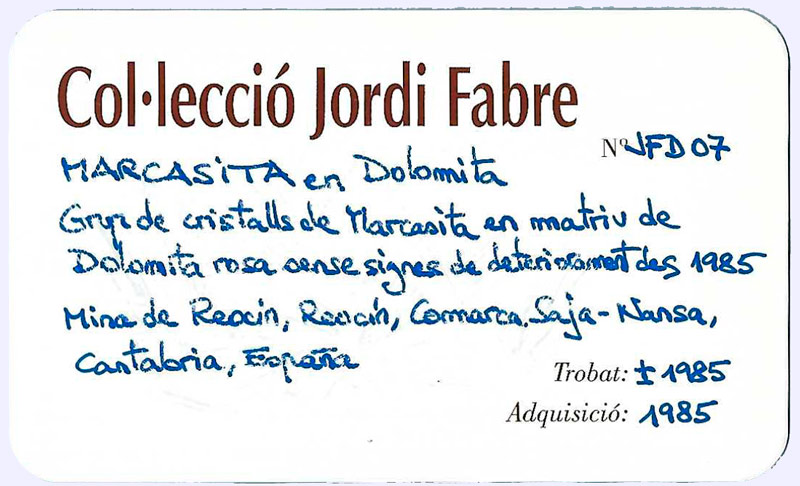 Col·lecció Jordi Fabre
Nº JFD07
MARCASITA en Dolomita
Grup de cristalls de Marcasita en matriu de
Dolomita rosa sense signes de deteriorament des 1985
Mina de Reocín, Reocín, Comarca Saja-Nansa,
Cantabria, España
Trobat: ± 1985
Adquisició: 1985